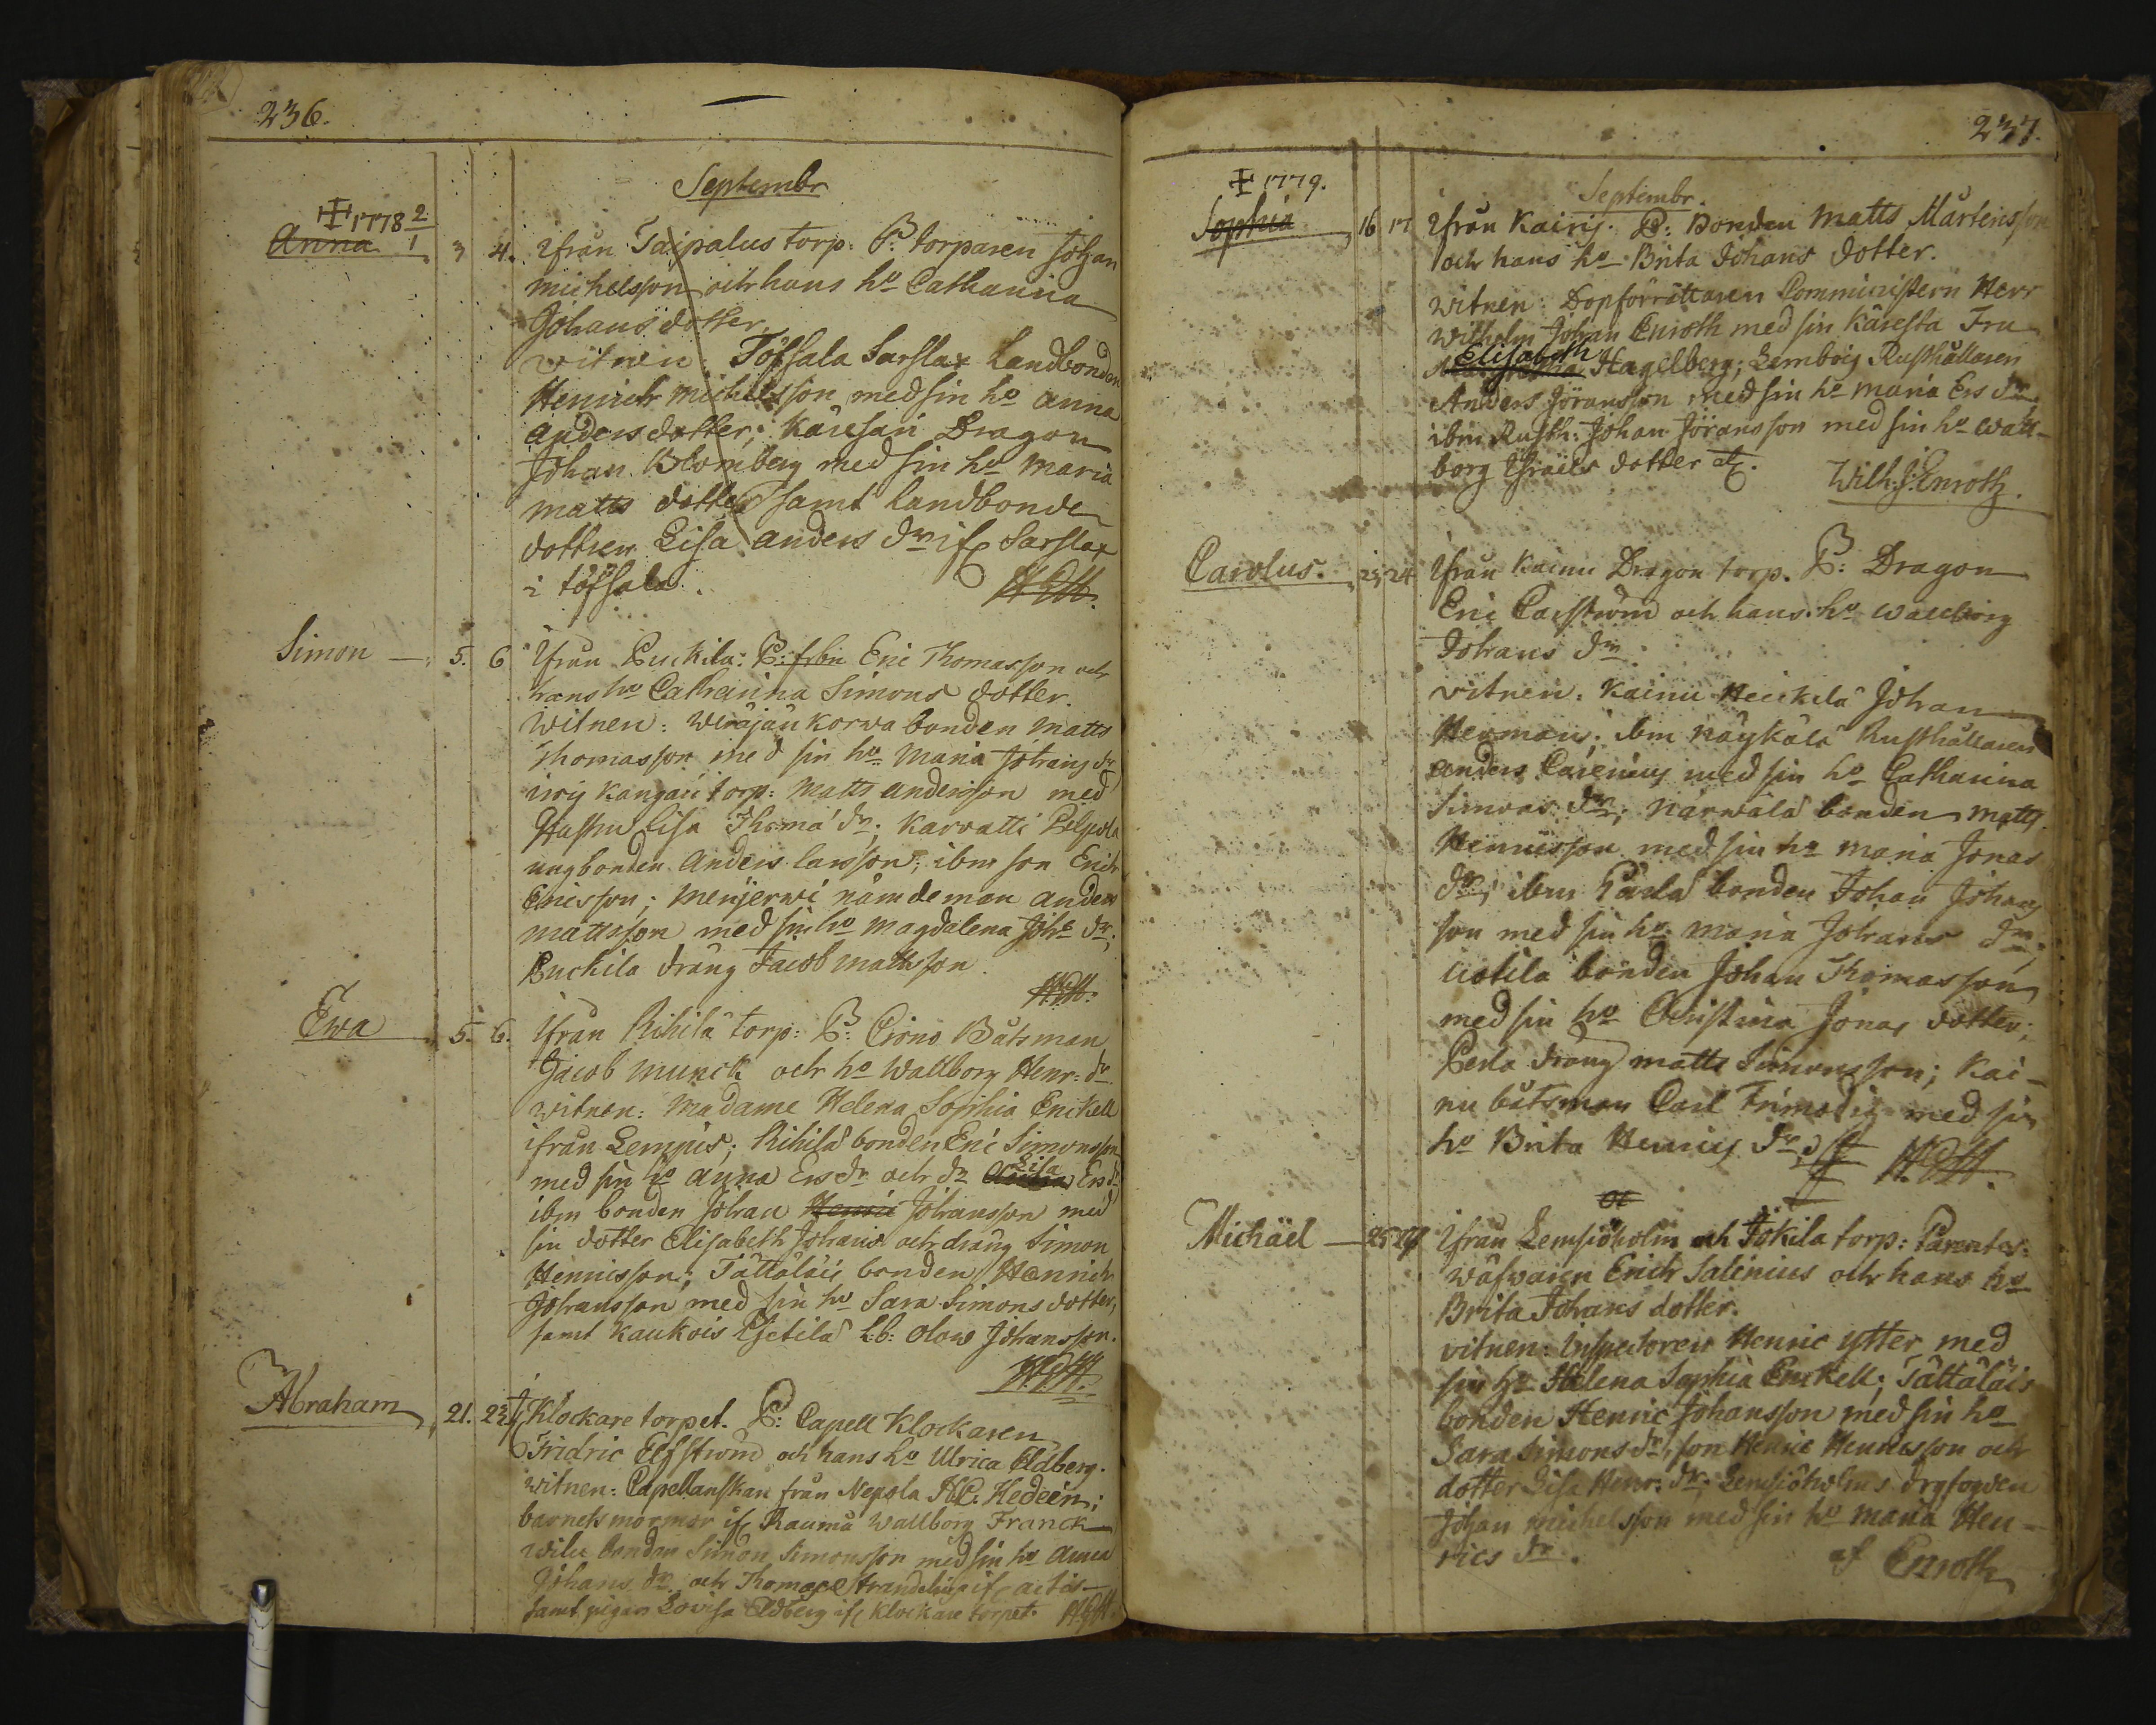 236.
Septembr
1778 2/1
Anna 3 4. Ifrån Taipalus torp. P: torparen Johan
Michelsson och hans ho Catharina
Johans dotter.
witnen: Töfsala Sarslax Landbonden
Henrich Michelsson med sin ho Anna
Anders dotter; Karesari Dragon
Johan Blomberg med sin ho Maria
Matts dotter samt landbonde
dottren Lisa Anders dr if Sarslax
i töfsala.
Simon 5. 6 Ifrån Puckila: P: Eric Thomasson och
hans ho Catharina Simons dotter.
witnen: korwa bonden Matts
Thomasson med sin ho Maria Johans dr
torp: Matts Andersson med
Hustru Lisa Thoma dr; Karvatti
ungbonden Anders Larsson; ibm son Erich
Ericsson; nämdeman Anders
Mattsson med sin ho Magdalena Joh: dr;
Puckila dräng Jacob Mattsson.
Ewa 5. 6. Ifrån Rihilä torp: P: Båtsman
Jacob Munck och ho Wallborg Henr: dr
witnen: Madame Helena Sophia Enckell
ifrån Lempis; Rihilä bonden Eric Simonsson
med sin ho Anna Ers dr och dr Lisa Ers dr
ibm bonden Johan Henric Johansson med
sin dotter Elisabeth Johans och dräng Simon
Henricsson; Tättäläis bonden Henrich
Johansson med sin ho Sara Simons dotter,
samt Kaukois L:b: Olow Johansson.
Abraham 21. 22 Klockare torpet. P: Capell Klockaren
Fridric Elfström och hans ho Ulrica Eldberg.
witnen: Capellanskan från Nepola H.C. Hedeen;
barnets mormor if Rauma Wallborg Franck
bonden Simon Simonsson med sin ho Anna
Johans dr och Thomas if
samt pigan Lovisa Eldberg if Klockare torpet.
237.
1779.
Septembr.
Sophia 16 17 Ifrån Kairis. P: Bonden Matts Mårtensson
och hans ho Brita Johans dotter.
witnen: Dopförrättaren Comministern Herr
Wilhelm Johan Enroth med sin Käresta Fru
Elisabeth Hagelberg; Lembois Rusthållaren
Anders Jöransson med sin ho Maria Ers dr
ibm Rusth: Johan Jöransson med sin ho Wall-
borg Israels dotter etc. Wilh. J: Enroth.
Carolus. 23 24 Ifrån Kainu Dragon torp. P: Dragon
Eric Carlström och hans ho Wallborg
Johans dr.
vitnen: Kainu Heickilä Johan
Herman; ibm Näykälä Rusthållaren
Anders Carenius med sin ho Catharina
Simons dr; Närwälä bonden Matts
Henricsson med sin ho Maria Jonas
dr; ibm bonden Johan Johans
son med sin ho Maria Johans dr;
Uotila bonden Johan Thomasson
med sin ho Christina Jonas dotter;
Perla dräng Matts Simonsson; Kai-
nu båtsman Carl Frimodig med sin
ho Brita Henrics dr
Michäel 25 27 Ifrån Lemsjöholm och Jokila torp: Parentes:
Wäfvaren Erich Salenius och hans ho
Brita Johans dotter.
vitnen: Inspectoren Henric Ytter med
sin ho Helena Sophia Enckell; Tättäläis
bonden Henric Johansson med sin ho
Sara Simons dr, son Henric Henricsson och
dotter Lisa Henr: dr; Lemsjöholms
Johan Michelsson med sin ho Maria Hen-
rics dr. af Enroth